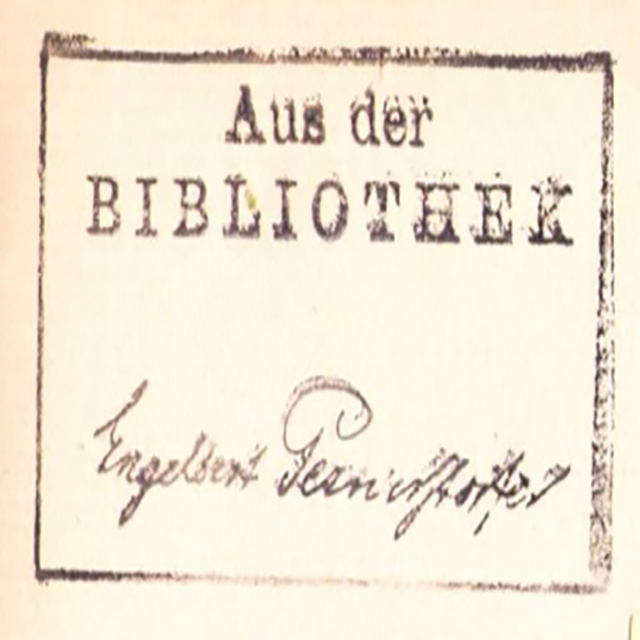 Aus der
BIBLIOTHEK
Engelbert Pernerstorfer